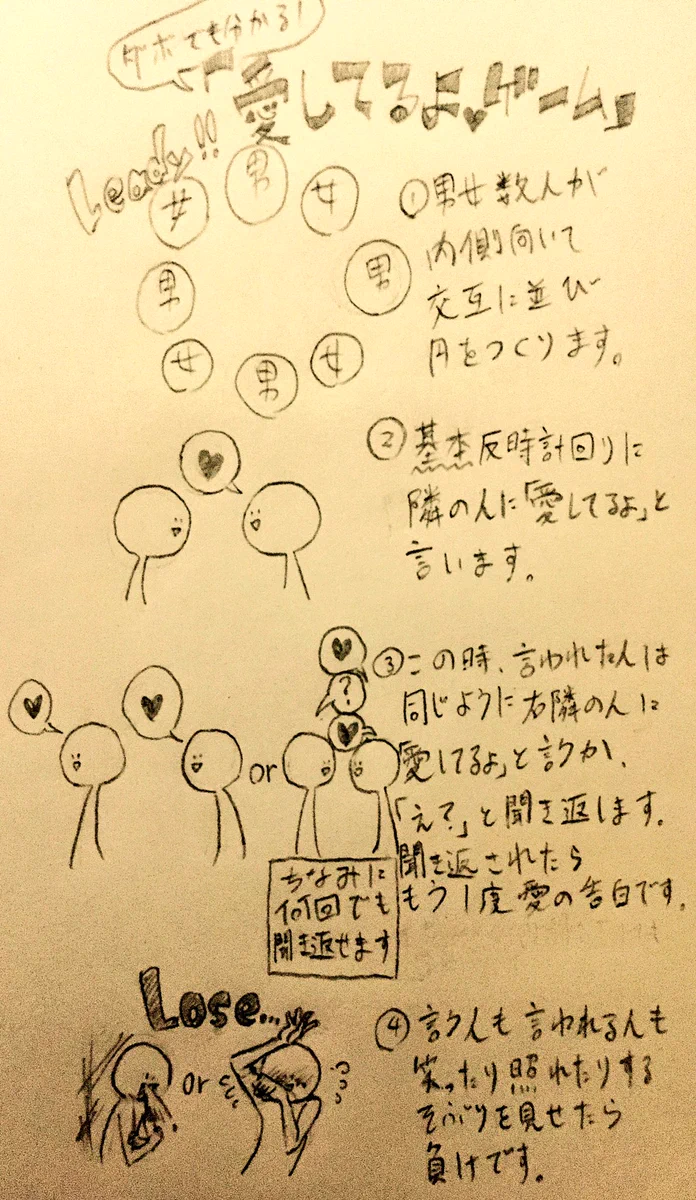 ゲボでも分かる!
「愛してるよ♥ゲーム」
Leady!!
女 男 女
男 男
女 男 女
①男女数人が
内側向いて
交互に並び
円をつくります。
②基本反時計回りに
隣の人に「愛してるよ」と
言います。
♥
③この時、言われた人は
同じように右隣の人に
「愛してるよ」と言うか、
「え?」と聞き返します。
聞き返されたら
もう1度愛の告白です。
♥ ♥ or ♥ ? ♥
ちなみに
何回でも
聞き返せます
Lose...
or
④言う人も言われる人も
笑ったり照れたりする
そぶりを見せたら
負けです。